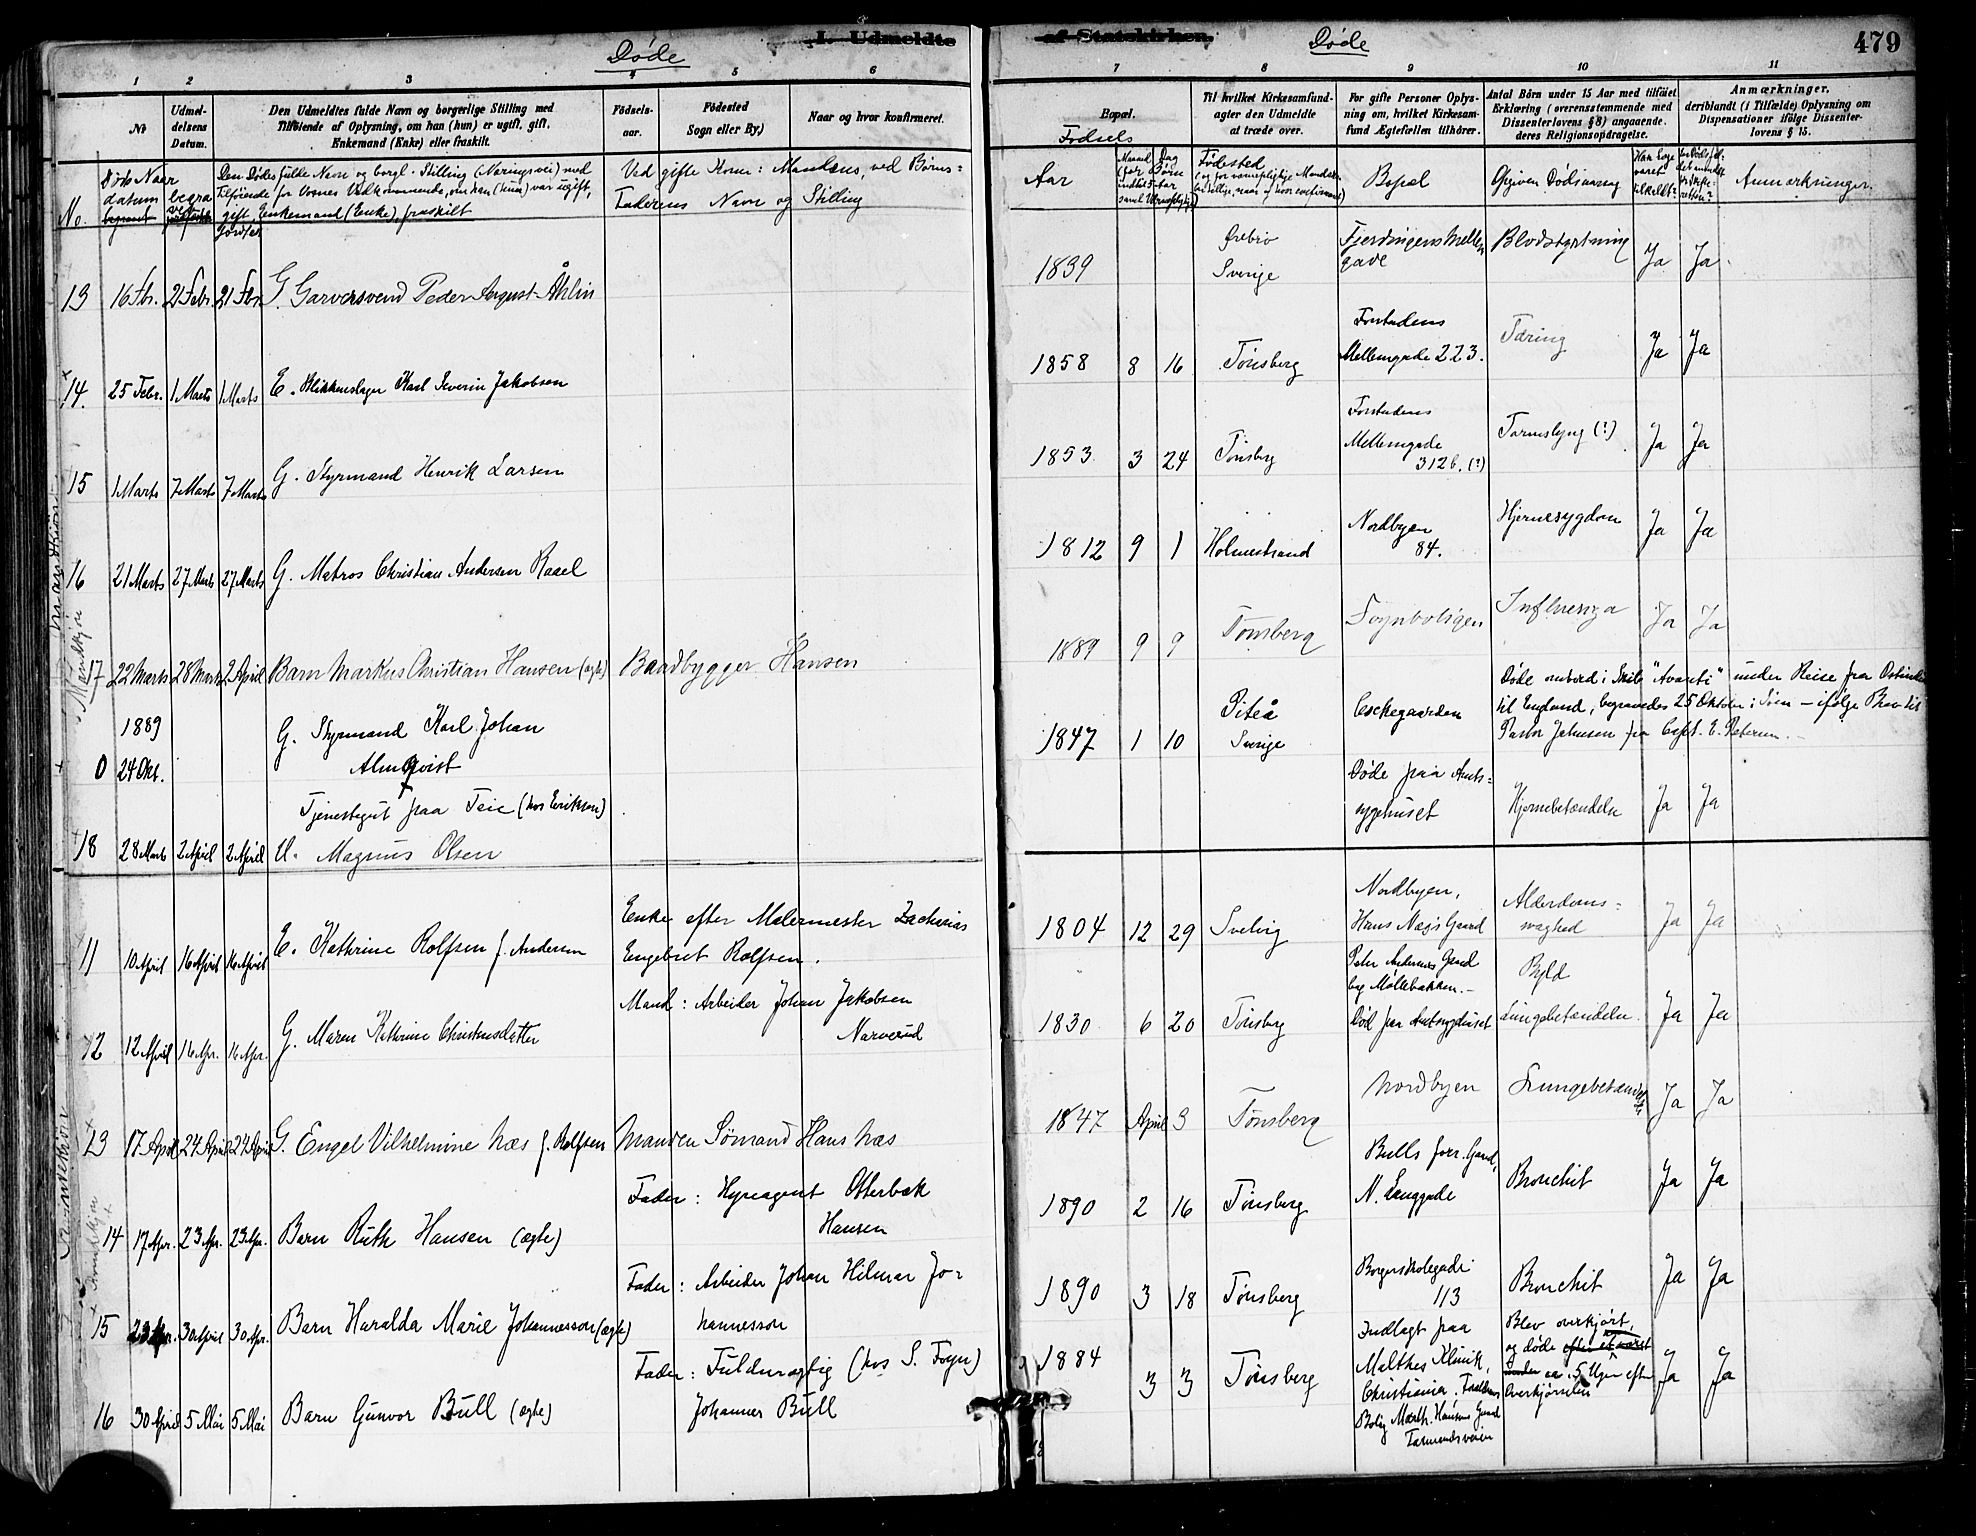 I. Udmeldte
Døde
1 2 3 4 5 6
№
Udmel-
delsens
Datum.
Den Udmeldtes fulde Navn og borgerlige Stilling med
Tilføiende af Oplysning, om han (hun) er ugift, gift,
Enkemand (Enke) eller fraskilt.
Fødsels-
aar.
Fødested
Sogn eller By.)
Naar og hvor konfirmeret.
No.
Døds
datum
Naar
begra-
vet
jordfæstet
Den Dødes fulde Navn og borgl. Stilling (Næringsvei) med
Tilføiende for Voxnes Vedkommende, om han (hun) var ugift,
gift, Enkemand (Enke), fraskilt
Ved gifte Koner: Mandens, ved Børns:
Faderens Navn og Stilling
13 16 Fbr. 21 Febr. 21 Fbr. G. Garversvend Peder August Åhlin
14. 25 Febr. 1 Marts 1 Marts E. Blikkenslager Karl Severin Jakobsen
15 1 Marts 7 Marts 7 Marts G. Styrmand Henrik Larsen
16 21 Marts 27 Marts 27 Marts G. Matros Christian Andersen Raael
Mandkjøn
17 22 Marts 28 Marts 2 April Barn Markus Christian Hansen (ægte) Baadbygger Hansen
1889
0 24 Okt. G. Styrmand Karl Johan
Almqvist
Tjenestegut paa Teie (hos Eriksen)
18 28 Marts 2 April 2 April U. Magnus Olsen
11 10 April 16 April 16 April E. Kathrine Rolfsen f. Andersen
Enke efter Malermester Zacharias
Engebret Rolfsen.
12 12 April 16 Apr. 16 Apr. G. Maren Kathrine Christensdatter
Mand: Arbeider Johan Jakobsen
Narverud
Kvindekjøn
13 17 April 24 April 24 April G. Engel Vilhelmine Næs f. Rolfsen Manden Sømand Hans Næs
14 17 Apr. 23 Apr. 23 Apr. Barn Ruth Hansen (ægte)
Fader: Hyreagent Otterbæk
Hansen
15 23 Apr. 30 April 30 Apr. Barn Haralda Marie Johannesson (ægte)
Fader: Arbeider Johan Hilmar Jo-
hannesson
16 30 April 5 Mai 5 Mai Barn Gunvor Bull (ægte)
Fader: Fuldmægtig (hos S. Foyn)
Johannes Bull
af Statskirken.
Døde
479
7 8 9 10 11
Bopæl.
Til hvilket Kirkesamfund-
agter den Udmeldte
at træde over.
For gifte Personer Oplys-
ning om, hvilket Kirkesam-
fund Ægtefællen tilhører.
Antal Børn under 15 Aar med tilføiet
Erklæring (overensstemmende med
Dissenterlovens § 8) angaaende
deres Religionsopdragelse.
Anmærkninger,
deriblandt (i Tilfælde) Oplysning om
Dispensationer ifølge Dissenter-
lovens § 15.
Fødsels
Aar
Maaned
Dag
Fødested
Bopæl
Opgiven Dødsaarsag
Anmærkninger
1839 Ørebro
Sverige
Fjerdingens Mellem
gade
Blodstyrtning Ja Ja
1858 8 16 Tønsberg
Forstadens
Mellemgade 223.
Tæring Ja Ja
1853 3 24 Tønsberg
Forstadens
Mellemgade
312 b. (?)
Tarmslyng (?) Ja Ja
1812 9 1 Holmestrand
Nordbyen
84.
Hjernesygdom Ja Ja
1889 9 9 Tønsberg Foynboligen Influenza Ja Ja
1847 1 10 Piteå
Sverige
Cockegaarden
Døde ombord i Skib "Avanti" under Reise fra Ostindien
til England, begravedes 25 Oktober i Søen – ifølge Brev til
Pastor Johnsen fra Capt. E. Petersen.
Døde paa Amts-
sygehuset
Hjernebetændelse Ja Ja
1804 12 29 Svelvig
Nordbyen,
Hans Næs's Gaard
Alderdoms-
svaghed
Ja Ja
1830 6 20 Tønsberg
Peter Andersens Gaard
Møllebakken.
Død paa Amtssygehuset
Byld
Lungebetændelse. Ja Ja
1847 April 3 Tønsberg Nordbyen Lungebetændelse Ja Ja
1890 2 16 Tønsberg
Bulls forr. Gaard,
N. Langgade
Bronchit Ja Ja
1890 3 18 Tønsberg
Borgerskolegade
113
Bronchit Ja Ja
1884 3 3 Tønsberg
Indlagt paa
Malthes Klinik,
Christiania. Forældrenes
Bolig Marth. Hansens Gaard
Farmandsveien
Blev overkjørt,
og døde efter at været
under ca. 5 Uger efter
Overkjørselen
Ja Ja